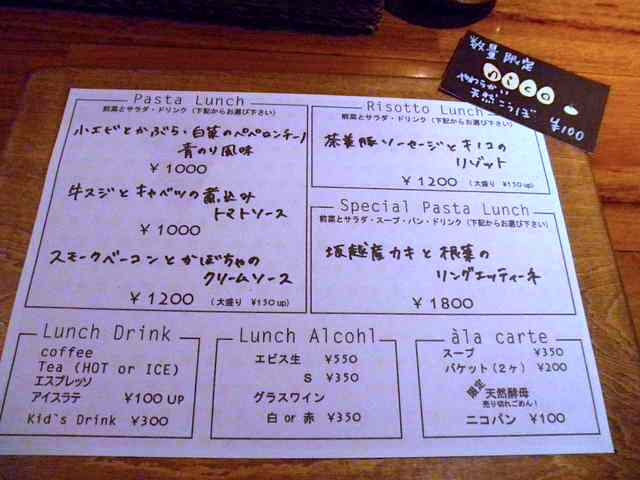 数量限定
nico
やわらかい
天然こうぼ
¥100
Pasta Lunch
前菜とサラダ・ドリンク(下記からお選び下さい)
小エビとかぶら・白菜のペペロンチーノ
青のり風味
¥1000
牛スジとキャベツの煮込み
トマトソース
¥1000
スモークベーコンとかぼちゃの
クリームソース
¥1200 (大盛り ¥150up)
Risotto Lunch
前菜とサラダ・ドリンク(下記からお選び下さい)
茶美豚ソーセージとキノコの
リゾット
¥1200 (大盛り ¥150up)
Special Pasta Lunch
前菜とサラダ・スープ・パン・ドリンク(下記からお選び下さい)
坂越産カキと根菜の
リングエッティーネ
¥1800
Lunch Drink
coffee
Tea (HOT or ICE)
エスプレッソ
アイスラテ ¥100 UP
Kid`s Drink ¥300
Lunch Alcohl
エビス生 ¥550
S ¥350
グラスワイン
白 or 赤 ¥350
àla carte
スープ ¥350
バケット(2ヶ) ¥200
限定 天然酵母
売り切れごめん!
ニコパン ¥100